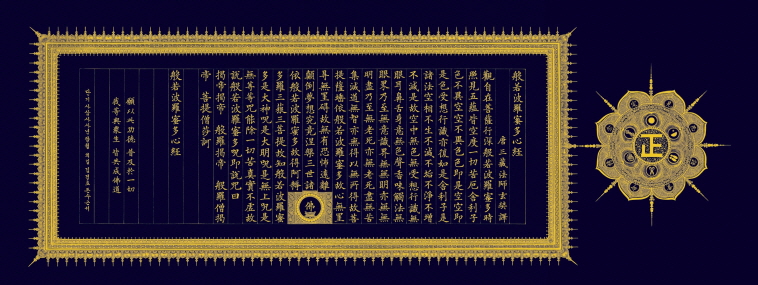 般若波羅蜜多心經
唐三藏法師玄奘譯
觀自在菩薩行深般若波羅蜜多時
照見五蘊皆空度一切苦厄舍利子
色不異空空不異色色即是空空即
是色受想行識亦復如是舍利子是
諸法空相不生不滅不垢不淨不增
不減是故空中無色無受想行識無
眼耳鼻舌身意無色聲香味觸法無
眼界乃至無意識界無無明亦無無
明盡乃至無老死亦無老死盡無苦
集滅道無智亦無得以無所得故菩
提薩埵依般若波羅蜜多故心無罣
礙無罣礙故無有恐怖遠離
顛倒夢想究竟涅槃三世諸
佛
依般若波羅蜜多故得阿耨
多羅三藐三菩提故知般若波羅蜜
多是大神呪是大明呪是無上呪是
無等等呪能除一切苦真實不虛故
說般若波羅蜜多呪即說呪曰
揭帝揭帝 般羅揭帝 般羅僧揭
帝 菩提僧莎訶
般若波羅蜜多心經
願以此功德 普及於一切
我等與衆生 皆共成佛道
正